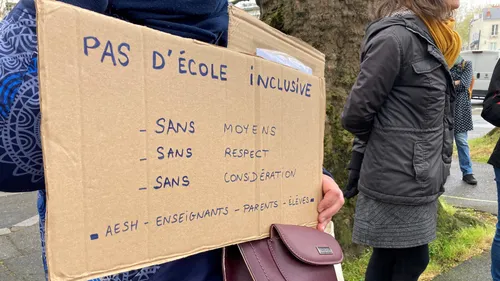 PAS D'ÉCOLE INCLUSIVE
- SANS MOYENS
- SANS RESPECT
- SANS CONSIDÉRATION
- AESH - ENSEIGNANTS - PARENTS - ÉLÈVES -